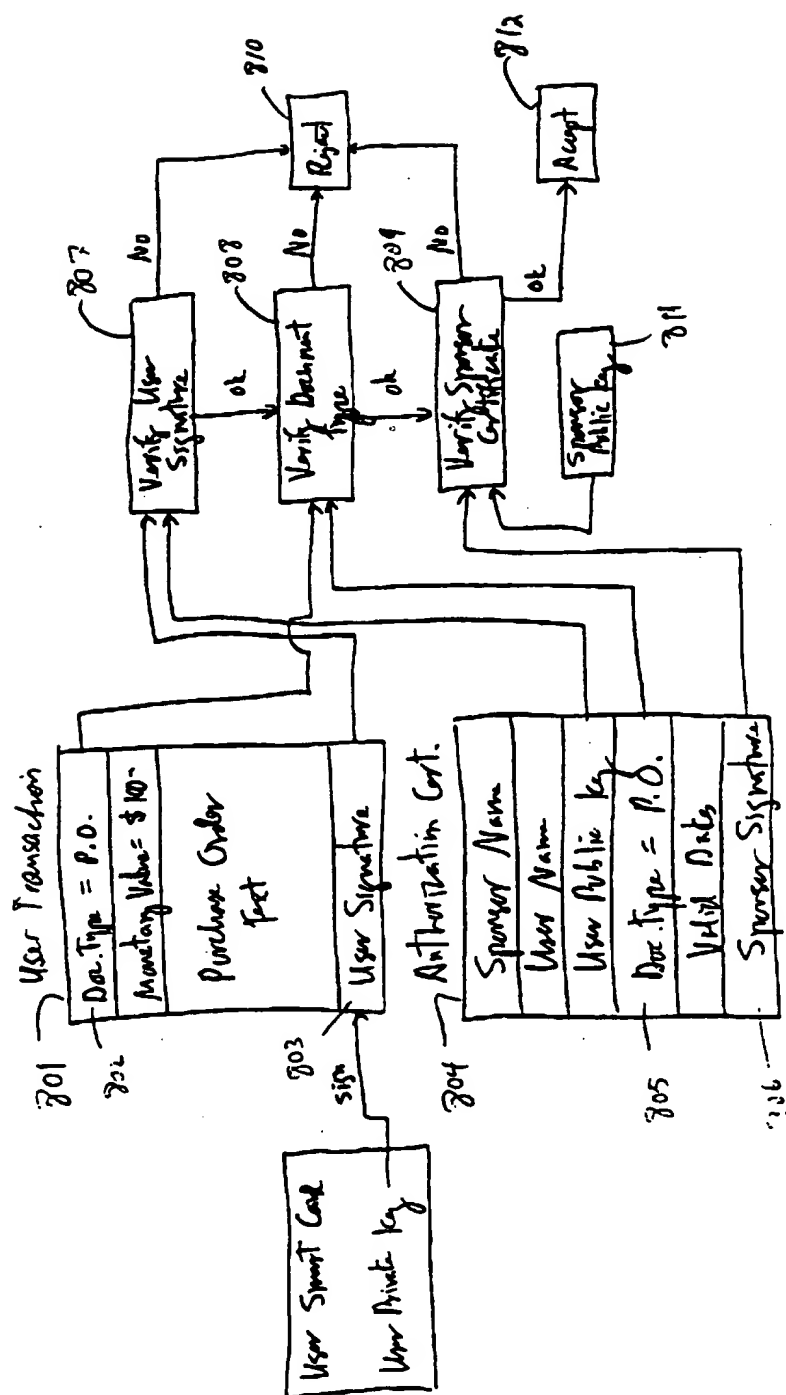 User Smart Card
User Private Key
sign
801
User Transaction
802
Doc. Type = P.O.
Purchase Order
Text
803
User Signature
804
Authorization Cert.
Sponsor Name
User Name
User Public Key
805
Doc. Type = P.O.
Valid Dates
Sponsor Signature
807
Verify User
Signature
No
ok
808
Verify Document
Type
No
ok
809
Verify Sponsor
Certificate
No
ok
810
Reject
Sponsor
Public Key
811
812
Accept